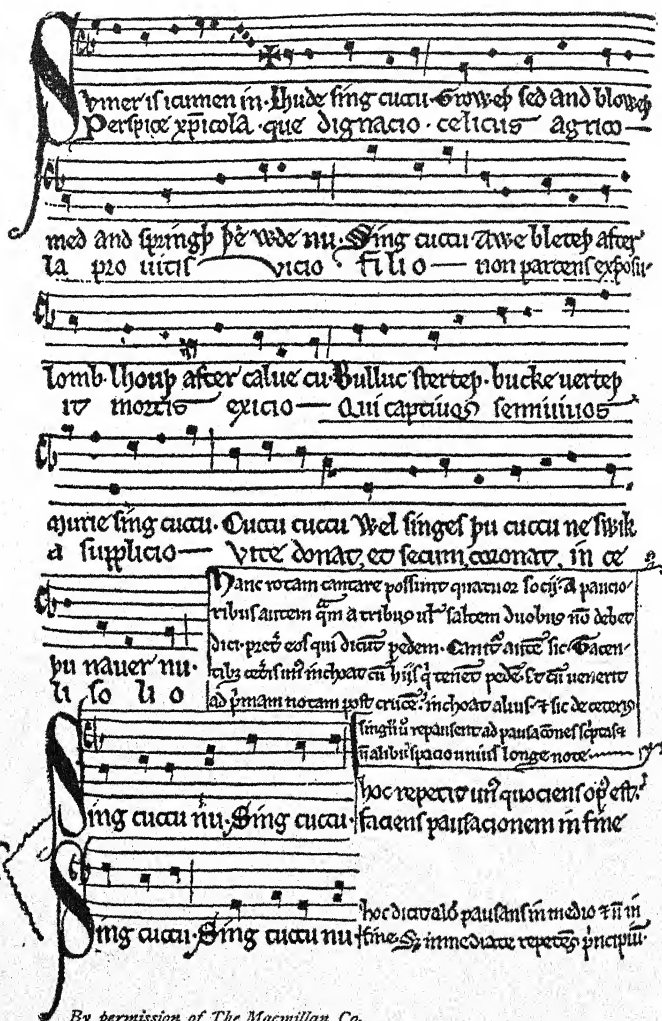 Sumer is icumen in· Lhude sing cuccu· Groweþ sed and bloweþ
Perspice xp̄icola· que dignacio· celicus agrico—
med and springþ þe wde nu· Sing cuccu Awe bleteþ after
la pro uitis vicio· filio— non parcens exposu-
lomb· lhouþ after calue cu· Bulluc sterteþ· bucke uerteþ
it mortis exicio— Qui captiuos semiuiuos
murie sing cuccu· Cuccu cuccu Wel singes þu cuccu ne swik
a supplicio— Vite donat, et secum coronat, in ce
þu nauer nu·
li so li o
Hanc rotam cantare possunt quatuor socij· A paucio-
ribus autem q̄m a tribus ul' saltem duobus nō debet
dici· pret̄ eos qui dicūt pedem· Canit᷑ autē sic· Tacen-
tibȝ cet̄is unꝰ inchoat cū hijs q̄ tenēt pedē· ⁊ cū uenerit
ad p̄mam notam post crucē· inchoat alius· ⁊ sic de ceteris
singłi ū repausent ad pausacōnes sc̄ptas ⁊
ñ alibi spacio unius longe note
Sing cuccu nu· Sing cuccu·
hoc repetit unꝰ quociens opꝰ est·
faciens pausacionem in fine
Sing cuccu· Sing cuccu nu
hoc dicit aliꝰ pausans in medio ⁊ ñ in
fine· Sȝ immediate repetēs p̄ncipiū·
By permission of The Macmillan Co.